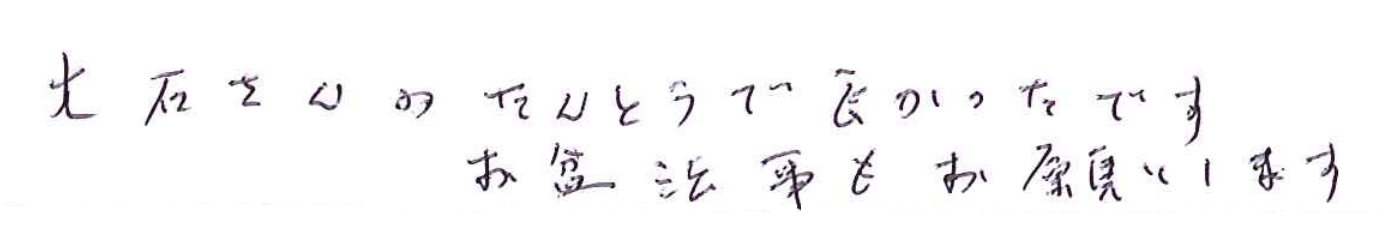 大石さんのたんとうで良かったです
お盆法事もお願いします